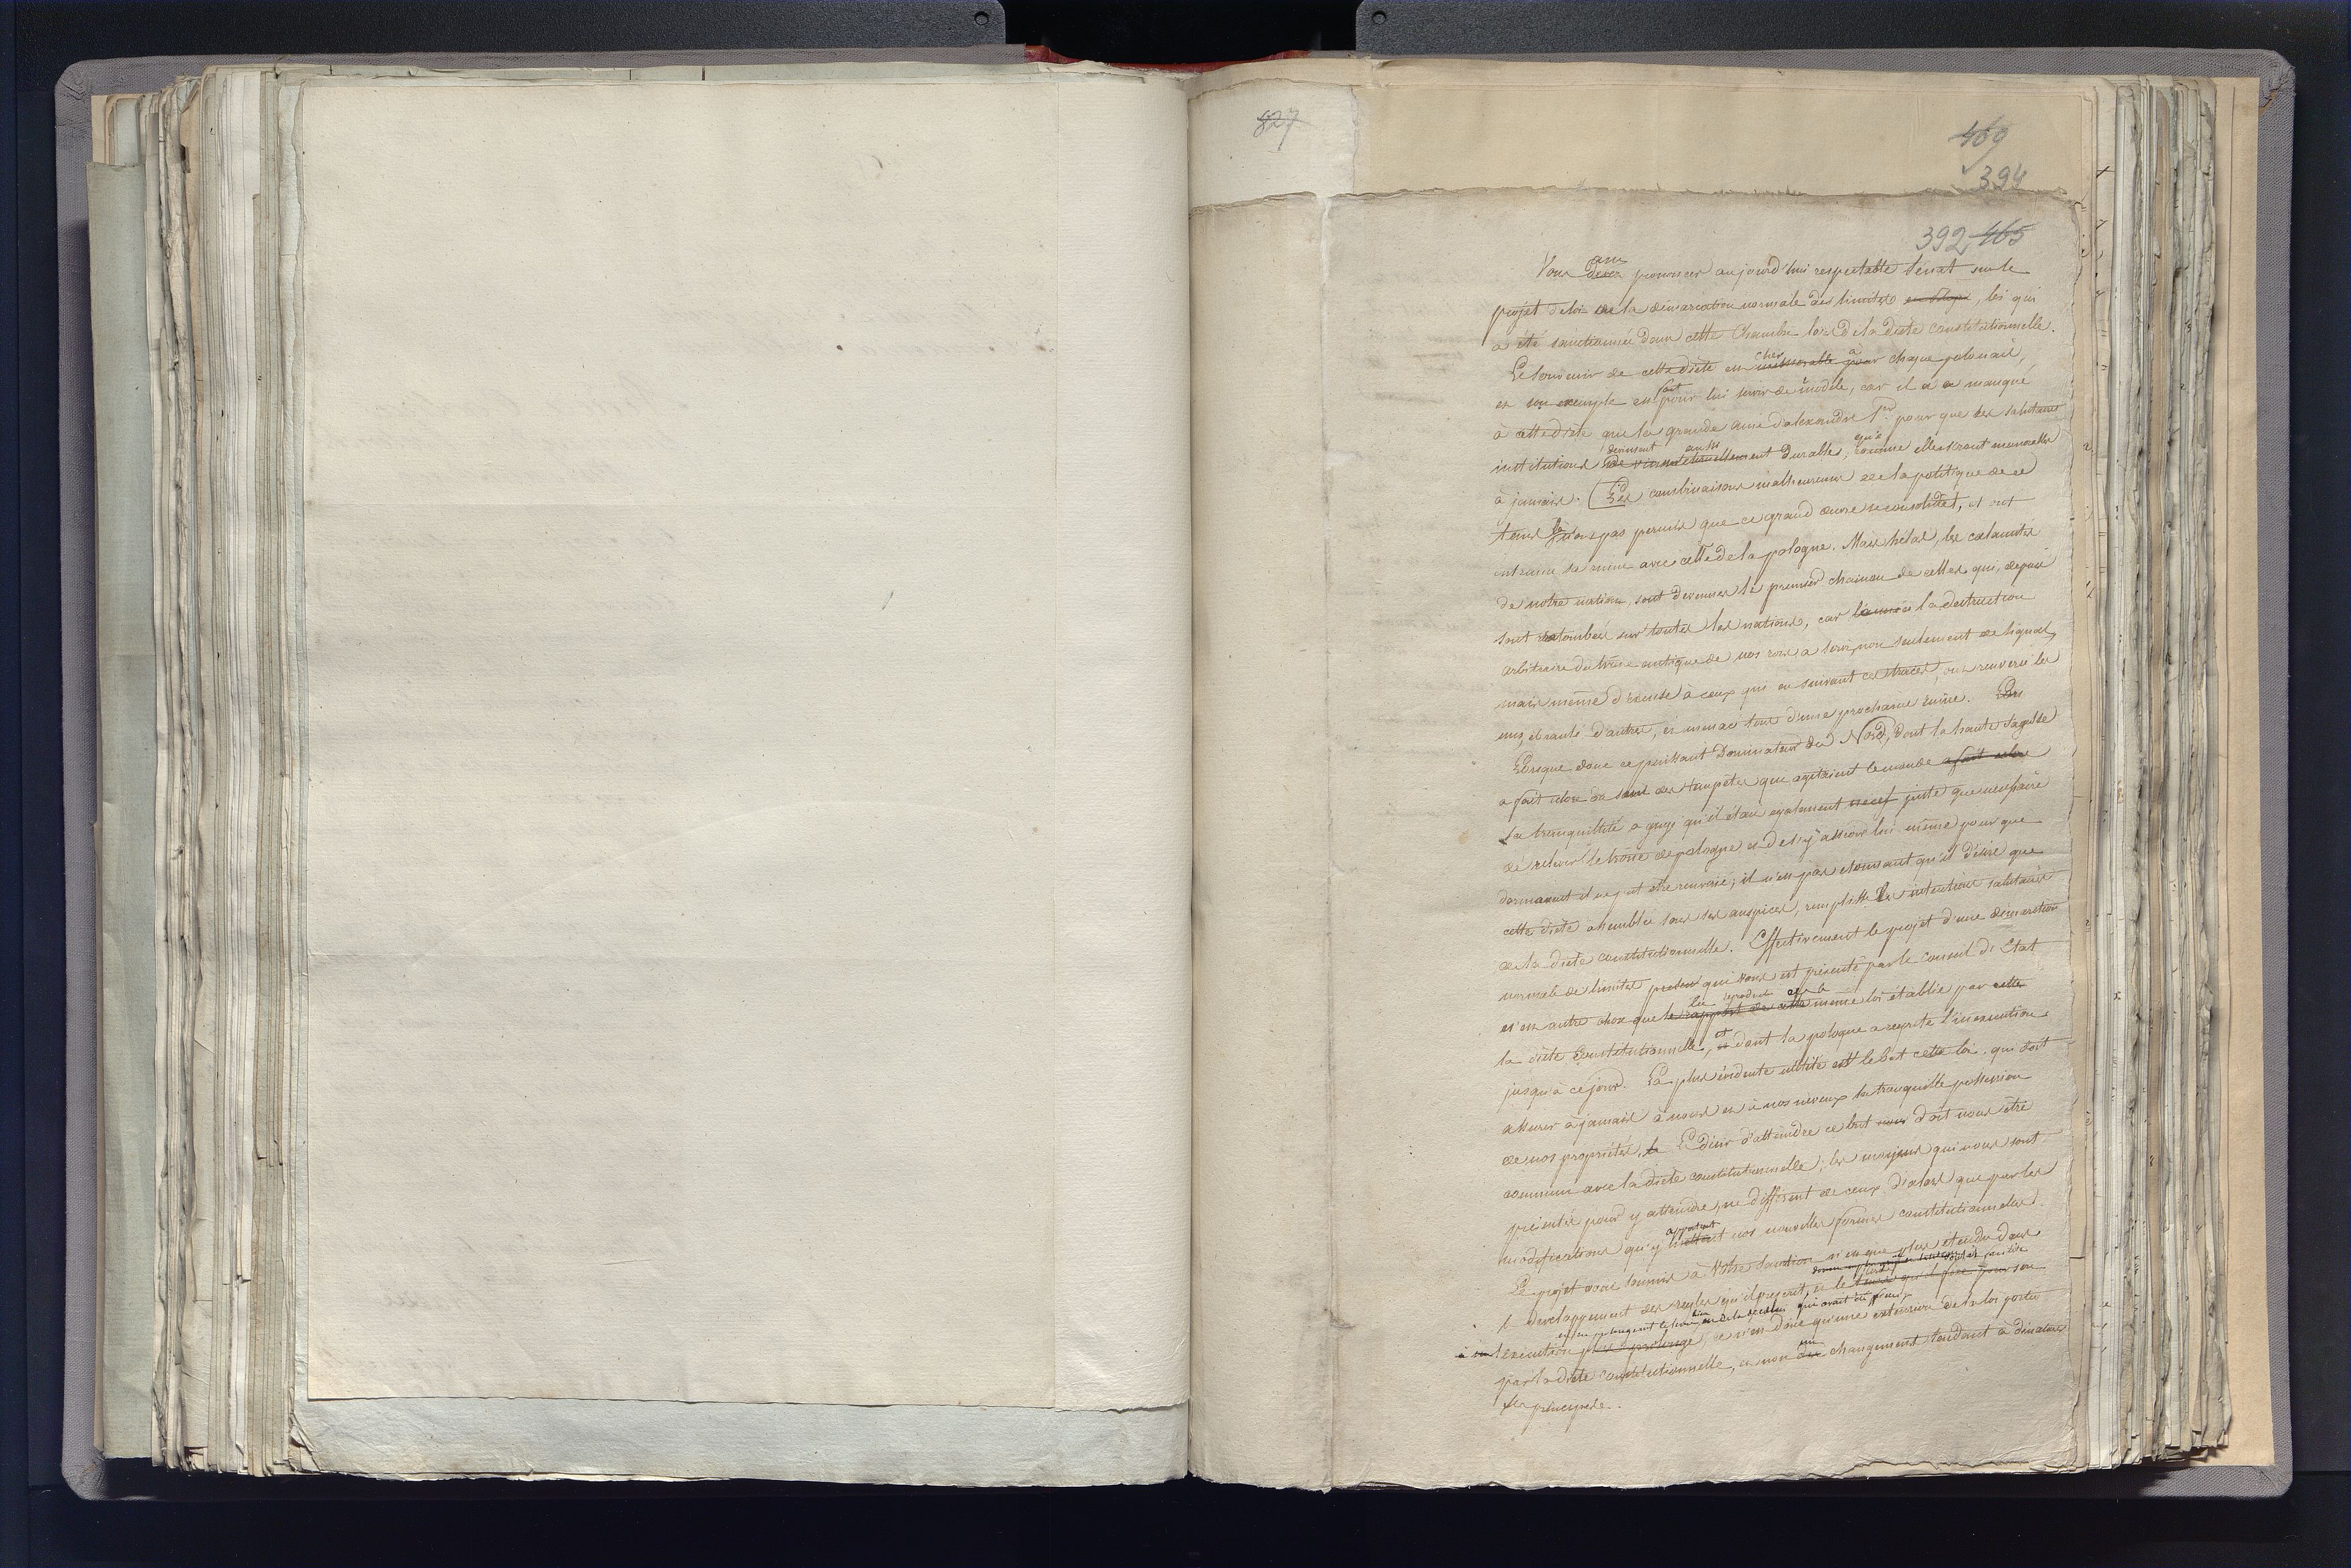 827
469
394
392 465
Vous allez prononcer aujourd'hui respectable Sénat sur le
projet de loi de la démarcation normale des limites, loi qui
a été sanctionnée dans cette Chambre lors de la diète constitutionnelle.
Le souvenir de cette diète est cher à chaque polonais,
et son exemple est fait pour lui servir de modèle, car il n'a manqué
à cette diète que la grande ame d'alexandre 1er pour que ses salutaires
institutions devinsent aussi durables, qu'elles seront memorables
à jamais. Les combinaisons malheureuses de la politique de ce
tems n'ont pas permis que ce grand œuvre se consolidât, et ont
entrainé sa ruine avec celle de la pologne. Mais hélas, les calamités
de notre nation, sont devenues le premier chainon de celles qui, depuis
sont retombées sur toutes les nations, car la destruction
arbitraire du trône antique de nos rois a servi non seulement de signal,
mais même d'excuse à ceux qui en suivant ces traces, ont renversé les
uns, ébranlé d'autres, et menacé tous d'une prochaine ruine.
Lorsque donc ce puissant Dominateur du Nord, dont la haute sagesse
a fait des tempêtes qui agitaient le monde
la tranquillité a jugé qu'il était egalement juste que necessaire
de relever le trône de pologne et de s'y asseoir lui même pour que
dorenavant il ne put être renversé; il n'est pas etonnant qu'il désire que
cette diète assemblée sous ses auspices, remplisse les intentions salutaires
de la diète constitutionnelle. Effectivement le projet d'une démarcation
normale de limites qui vous est présenté par le Conseil d'Etat
n'est autre chose que le rapport de cette même loi établie par
la diète Constitutionnelle, et dont la pologne a regretté l'inexecution
jusqu'à ce jour. La plus évidente utilité est le but cette loi qui doit
assurer à jamais à nous et à nos neveux la tranquille possession
de nos propriétés, Le désir d'atteindre ce but doit nous être
commun avec la diète constitutionnelle; les moyens qui nous sont
présentés pour y atteindre, ne diffèrent de ceux d'alors que par les
modifications qu'y apportent nos nouvelles formes constitutionnelles.
Le projet donc soumis à Votre Sanction n'est que plus etendu dans
le developpement des regles qu'il prescrit, et le
execution, ce n'est donc qu'une extension de la loi portée
par la diète constitutionnelle, et non un changement tendant à dénaturer
ses principes.